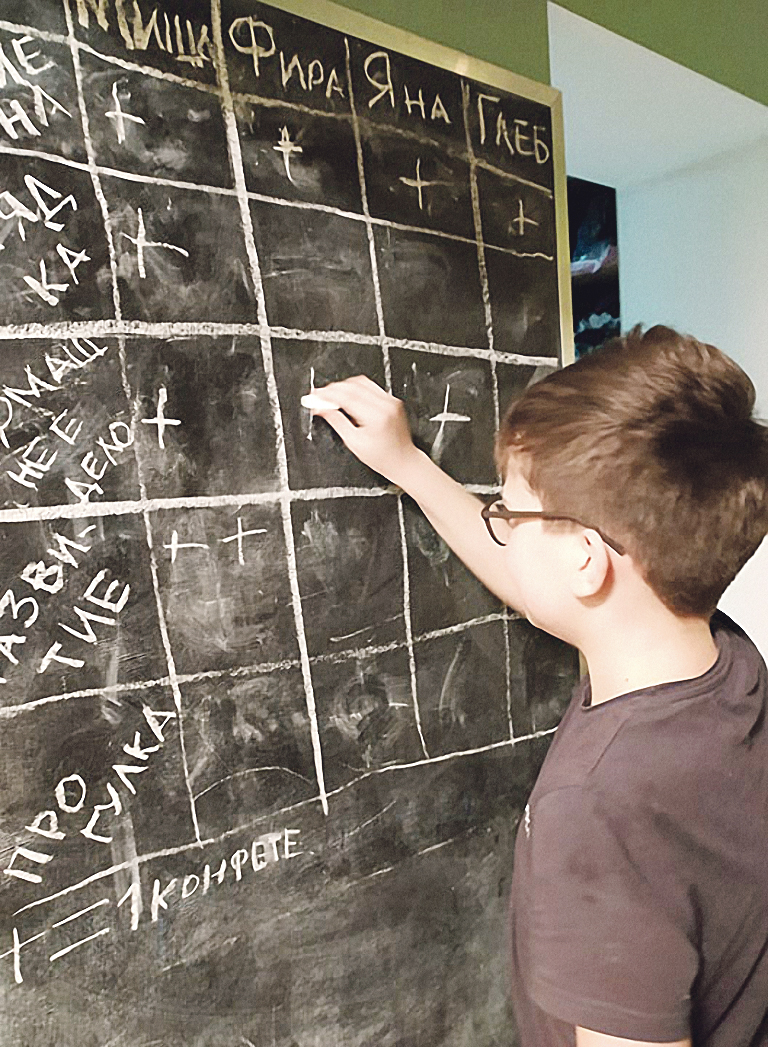 МИША ФИРА ЯНА ГЛЕБ
ИЕ
НА
ЯД
КА
ОМАШ
НЕЕ
ДЕЛО
АЗВИ-
ТИЕ
ПРО
ГУЛКА
+ = 1 КОНФЕТЕ